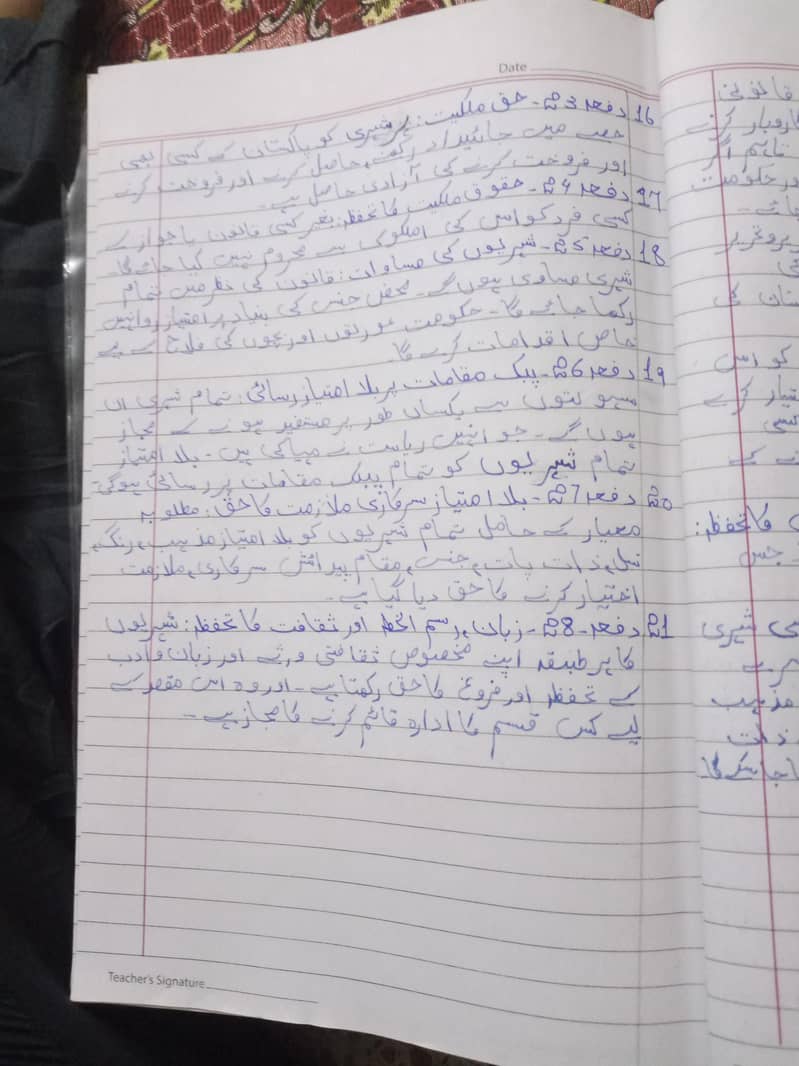 Date
16 دفعہ 23۔ حق ملکیت: ہر شہری کو پاکستان کے کسی بھی
حصے میں جائیداد رکھنے، حاصل کرنے اور فروخت کرنے
اور فروخت کرنے کی آزادی حاصل ہے۔
17 دفعہ 24۔ حقوق ملکیت کا تحفظ: بغیر کسی قانون یا جواز کے
کسی فرد کو اس کی املوک سے محروم نہیں کیا جائے گا۔
18 دفعہ 25۔ شہریوں کی مساوات: قانون کی نظر میں تمام
شہری مساوی ہوں گے۔ محض جنس کی بنیاد پر امتیاز روا نہیں
رکھا جائے گا۔ حکومت عورتوں اور بچوں کی فلاح کے لیے
خاص اقدامات کرے گا۔
19 دفعہ 26۔ پبلک مقامات پر بلا امتیاز رسائی: تمام شہری ان
سہولتوں سے یکساں طور پر مستفیر ہونے کے مجاز
ہوں گے۔ جو انہیں ریاست نے مہیا کی ہیں۔ بلا امتیاز
تمام شہریوں کو تمام پبلک مقامات پر رسائی ہوگی۔
20 دفعہ 27۔ بلا امتیاز سرکاری ملازمت کا حق: مطلوبہ
معیار کے حامل تمام شہریوں کو بلا امتیاز مذہب، رنگ،
نسل، ذات پات، جنس، مقام پیدائش سرکاری، ملازمت
اختیار کرنے کا حق دیا گیا ہے۔
21 دفعہ۔ 28۔ زبان، رسم الخط اور ثقافت کا تحفظ: شہریوں
کا ہر طبقہ اپنے مخصوص ثقافتی ورثے اور زبان و ادب
کے تحفظ اور فروغ کا حق رکھتا ہے۔ اور وہ اس مقصد کے
لیے کس قسم کا ادارہ قائم کرنے کا مجاز ہے۔
Teacher's Signature
قانونی
کاروبار کرنے
تاہم اگر
اور حکومت
جائے۔
و تحریر
کی
کو اس
کرے
کسی
کے
کا تحفظ:
جس
شہری
مذہب
ذات
جا سکے گا